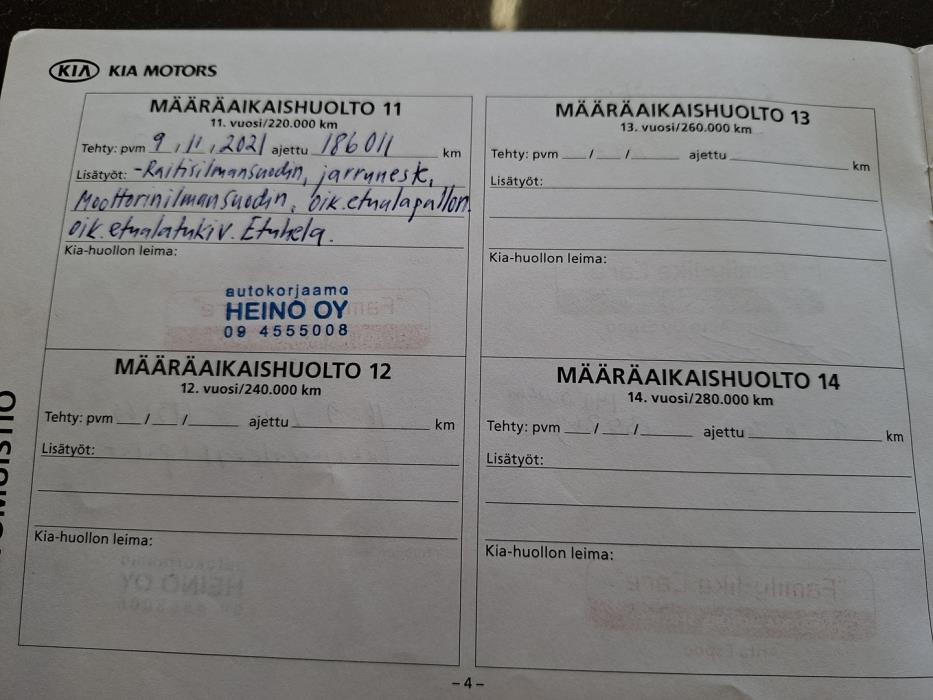 KIA KIA MOTORS
MÄÄRÄAIKAISHUOLTO 11
11. vuosi/220.000 km
Tehty: pvm 9 / 11 / 2021 ajettu 186011 km
Lisätyöt: -Raitisilmansuodin, jarrunesk,
Moottorinilmansuodin, oik.etualapallon.
oik.etualatukiv. Etuhela.
Kia-huollon leima:
autokorjaamo
HEINO OY
09 4555008
MÄÄRÄAIKAISHUOLTO 12
12. vuosi/240.000 km
Tehty: pvm / / ajettu km
Lisätyöt:
Kia-huollon leima:
MÄÄRÄAIKAISHUOLTO 13
13. vuosi/260.000 km
Tehty: pvm / / ajettu km
Lisätyöt:
Kia-huollon leima:
MÄÄRÄAIKAISHUOLTO 14
14. vuosi/280.000 km
Tehty: pvm / / ajettu km
Lisätyöt:
Kia-huollon leima:
– 4 –